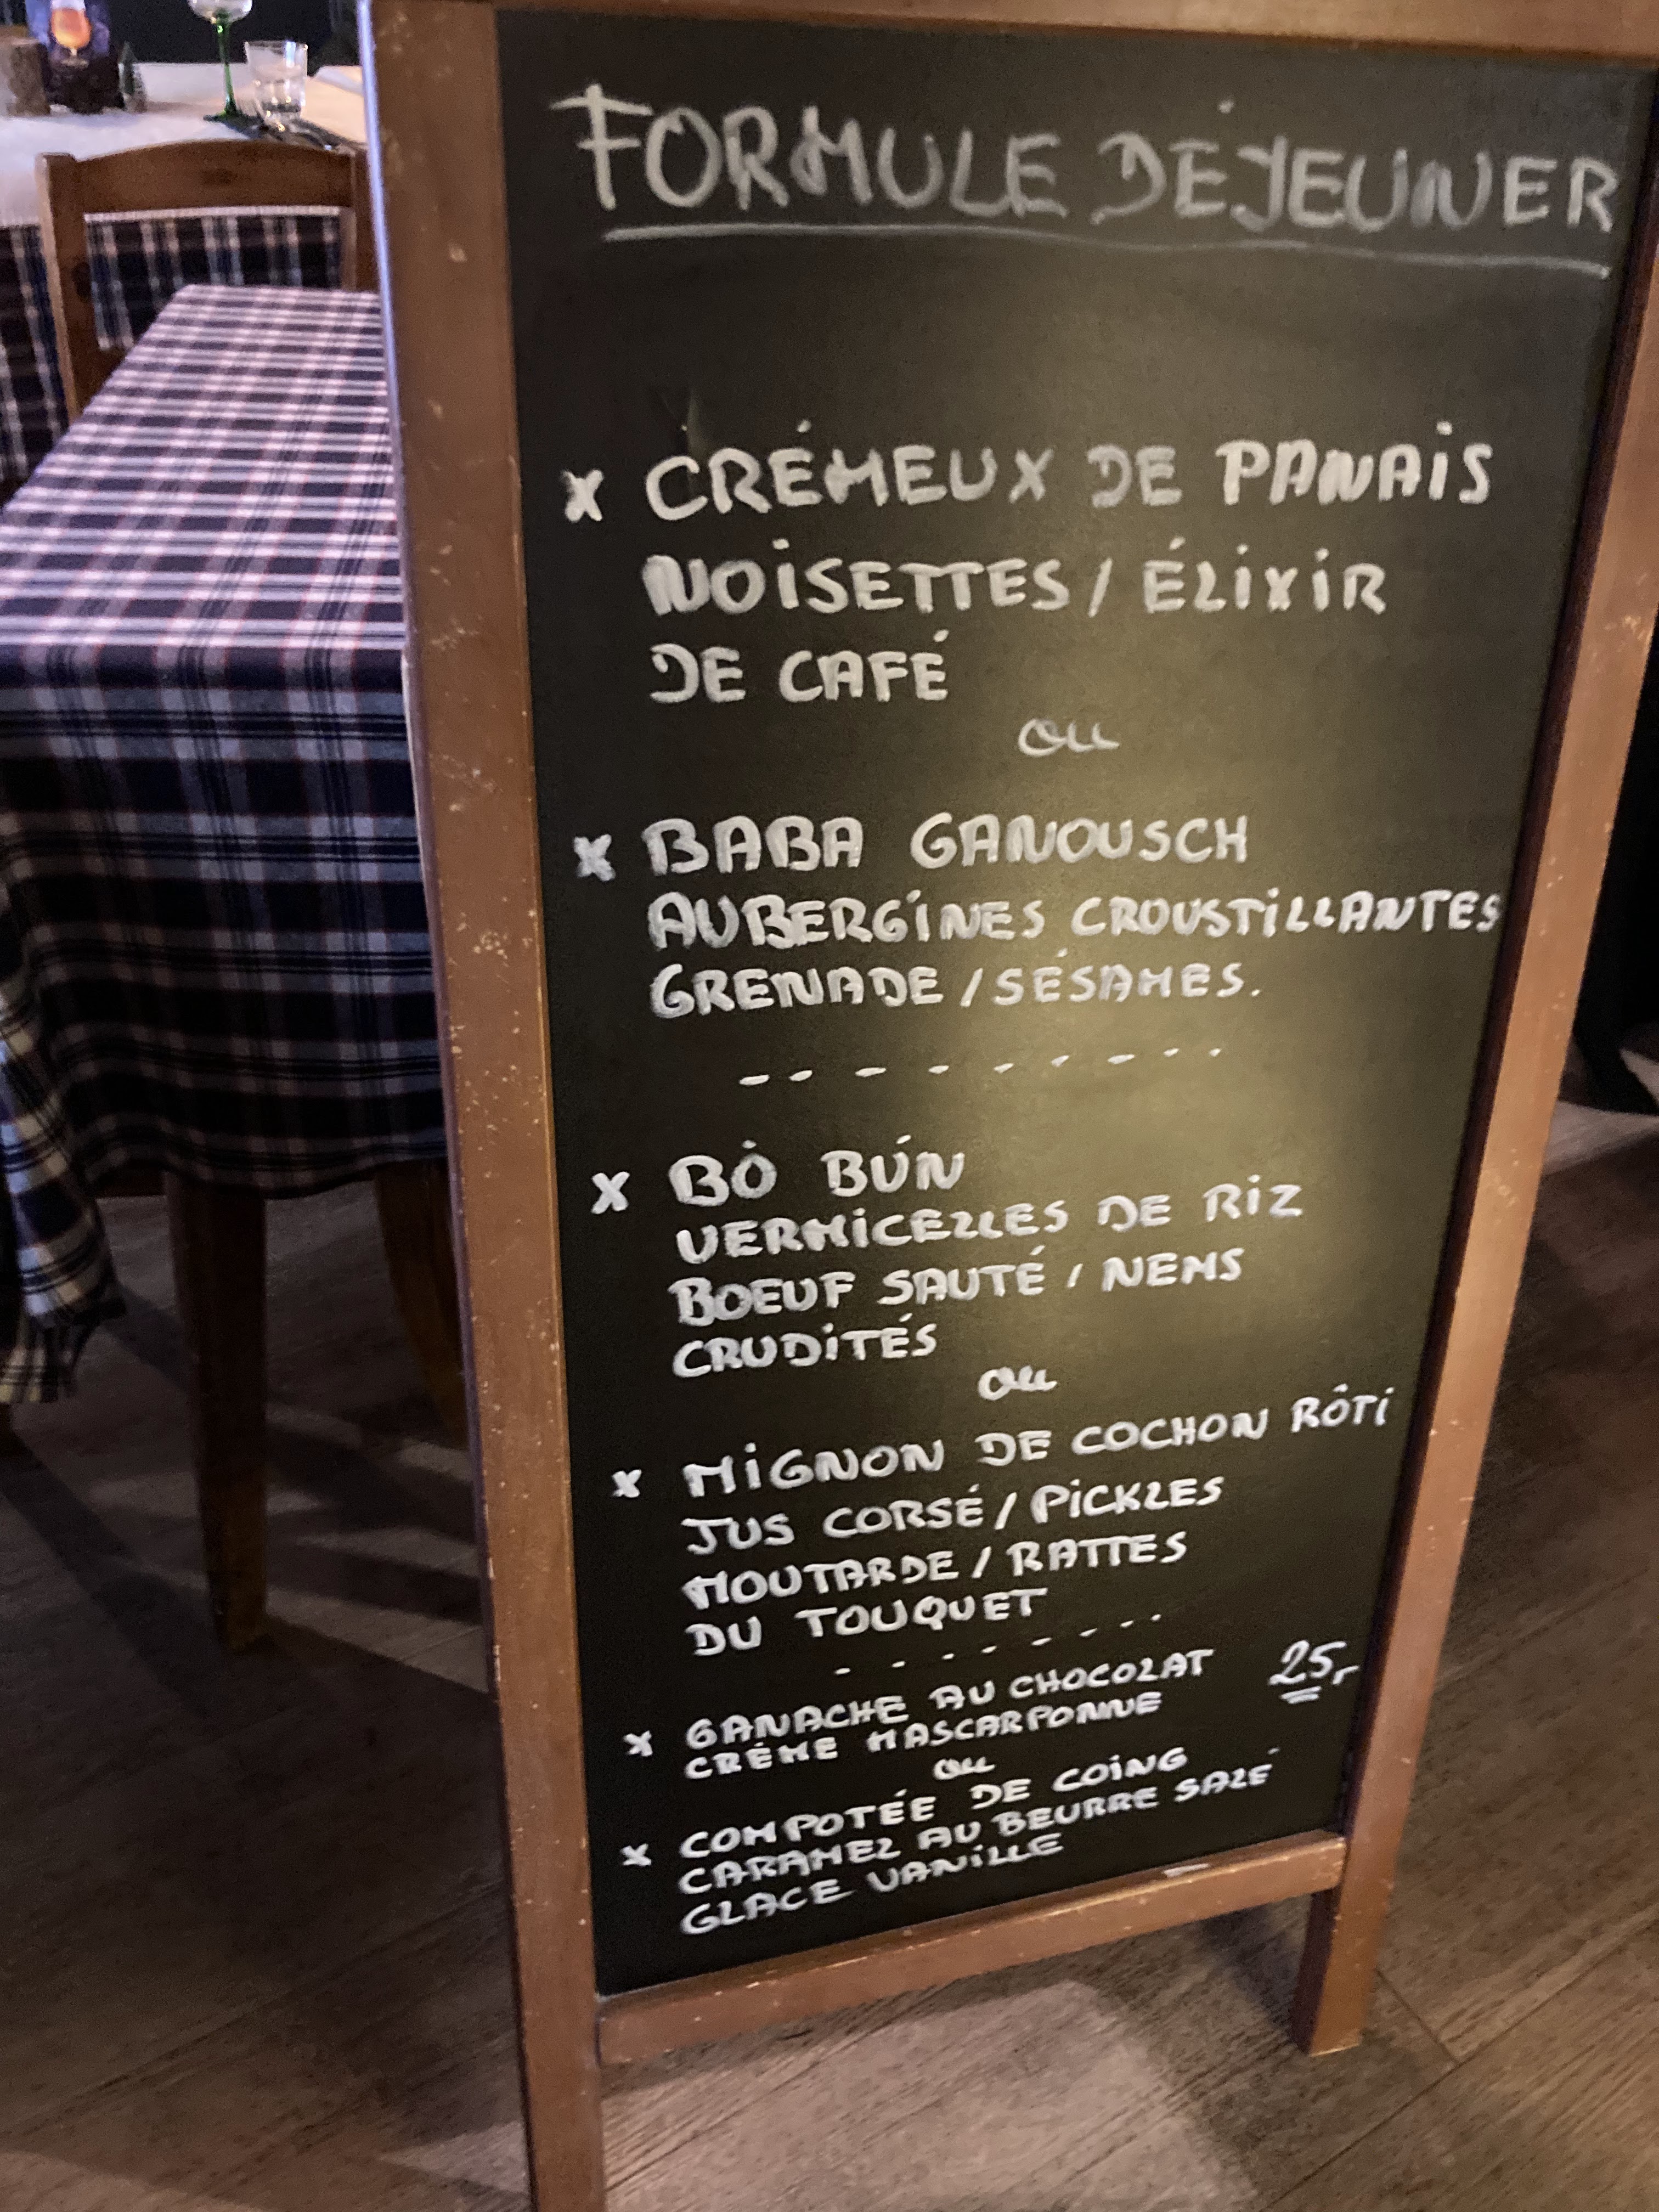 FORMULE DÉJEUNER
x CRÉMEUX DE PANAIS
NOISETTES / ÉLIXIR
DE CAFÉ
ou
x BABA GANOUSCH
AUBERGINES CROUSTILLANTES
GRENADE / SÉSAMES.
x BÒ BÚN
VERMICELLES DE RIZ
BOEUF SAUTÉ / NEMS
CRUDITÉS
ou
x MIGNON DE COCHON RÔTI
JUS CORSÉ / PICKLES
MOUTARDE / RATTES
DU TOUQUET
x GANACHE AU CHOCOLAT 25,-
CRÈME MASCARPONNE
ou
x COMPOTÉE DE COING
CARAMEL AU BEURRE SALÉ
GLACE VANILLE